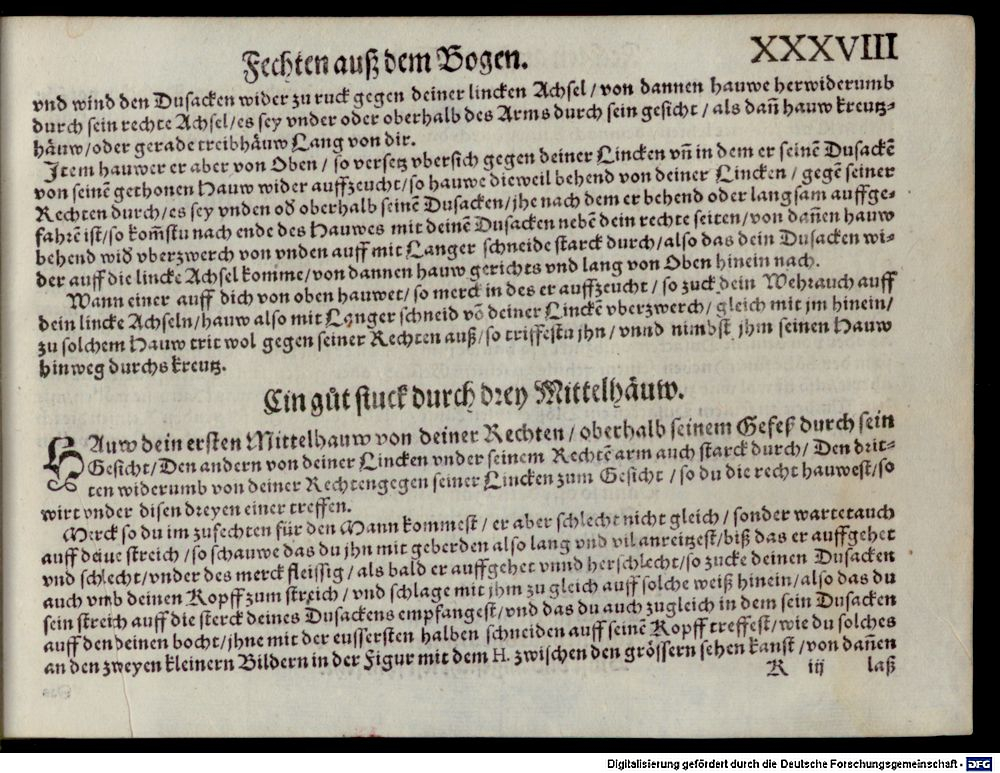 Fechten auß dem Bogen.
XXXVIII
vnd wind den Dusacken wider zu ruck gegen deiner lincken Achsel / von dannen hauwe herwiderumb
durch sein rechte Achsel / es sey vnder oder oberhalb des Arms durch sein gesicht / als dañ hauw kreutz-
häuw / oder gerade treibhäuw Lang von dir.
Item hauwer er aber von Oben / so versetz vbersich gegen deiner Lincken vñ in dem er seinē Dusackē
von seinē gethonen Hauw wider auffzeucht / so hauwe dieweil behend von deiner Lincken / gegē seiner
Rechten durch / es sey vnden oď oberhalb seinē Dusacken / jhe nach dem er behend oder langsam auffge-
fahrē ist / so kom̃stu nach ende des Hauwes mit deinē Dusacken nebē dein rechte seiten / von dañen hauw
behend wiď vberzwerch von vnden auff mit Langer schneide starck durch / also das dein Dusacken wi-
der auff die lincke Achsel komme / von dannen hauw gerichts vnd lang von Oben hinein nach.
Wann einer auff dich von oben hauwet / so merck in des er auffzeucht / so zuck dein Wehr auch auff
dein lincke Achseln / hauw also mit Langer schneid vō deiner Linckē vberzwerch / gleich mit jm hinein /
zu solchem Hauw trit wol gegen seiner Rechten auß / so triffestu jhn / vnnd nimbst jhm seinen Hauw
hinweg durchs kreutz.
Ein gůt stuck durch drey Mittelhäuw.
HAuw dein ersten Mittelhauw von deiner Rechten / oberhalb seinem Gefeß durch sein
Gesicht / Den andern von deiner Lincken vnder seinem Rechtē arm auch starck durch / Den drit-
ten widerumb von deiner Rechten gegen seiner Lincken zum Gesicht / so du die recht hauwest / so
wirt vnder disen dreyen einer treffen.
Merck so du im zufechten für den Mann kommest / er aber schlecht nicht gleich / sonder wartet auch
auff deine streich / so schauwe das du jhn mit geberden also lang vnd vil anreitzest / biß das er auffgehet
vnd schlecht / vnder des merck fleissig / als bald er auffgehet vnnd her schlecht / so zucke deinen Dusacken
auch vmb deinen Kopff zum streich / vnd schlage mit jhm zu gleich auff solche weiß hinein / also das du
sein streich auff die sterck deines Dusackens empfangest / vnd das du auch zugleich in dem sein Dusacken
auff den deinen bocht / jhne mit der eussersten halben schneiden auff seinē Kopff treffest / wie du solches
an den zweyen kleinern Bildern in der Figur mit dem H. zwischen den grössern sehen kanst / von dañen
K iij laß
Digitalisierung gefördert durch die Deutsche Forschungsgemeinschaft - DFG